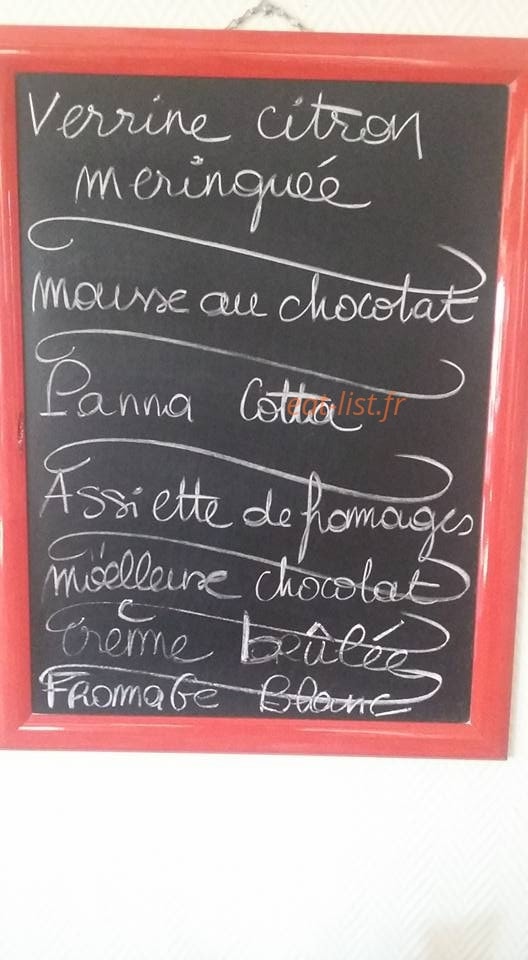 Verrine citron
meringuée
mousse au chocolat
Panna Cotta
eat-list.fr
Assiette de fromages
möelleuse chocolat
Crème brûlée
FROMAGE Blanc